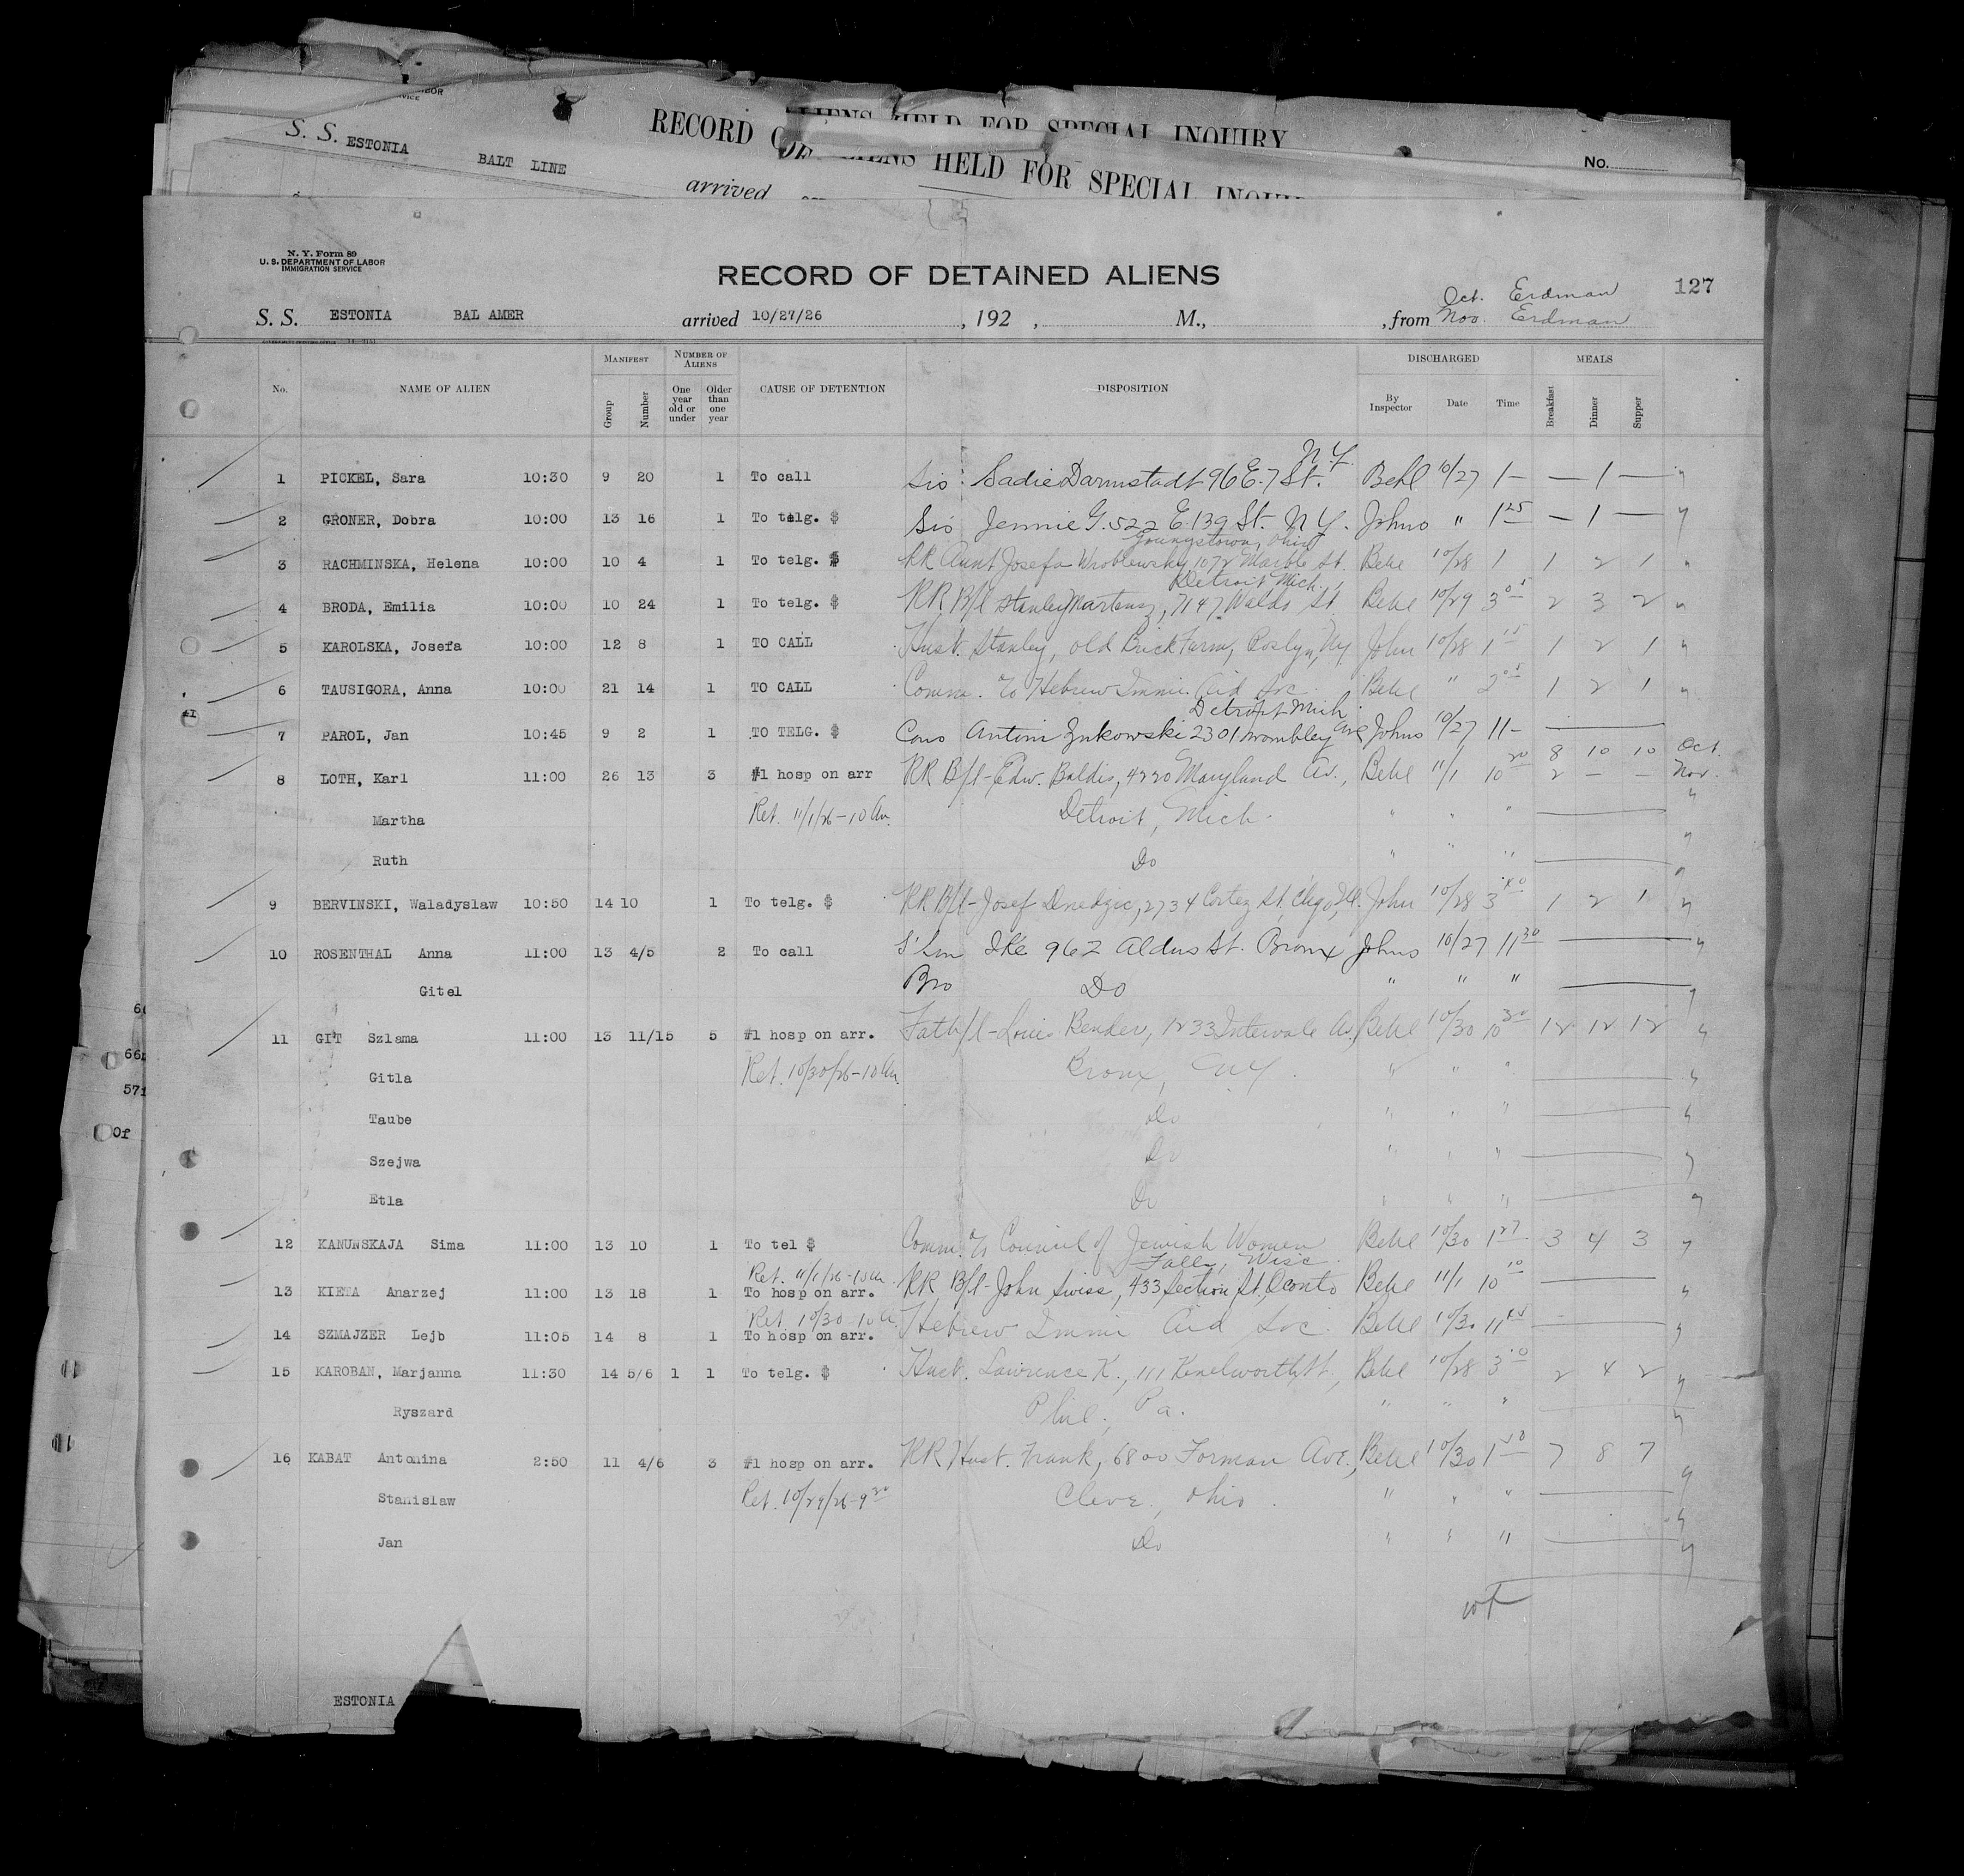 RECORD OF ALIENS HELD FOR SPECIAL INQUIRY
S. S. ESTONIA BALT LINE
arrived
No.
ALIENS HELD FOR SPECIAL INQUIRY
N. Y. Form 89
U. S. DEPARTMENT OF LABOR
IMMIGRATION SERVICE
RECORD OF DETAINED ALIENS
127
Oct. Erdman
S. S. ESTONIA BAL AMER arrived 10/27/26, 192 , M., , from Nov. Erdman
No. NAME OF ALIEN MANIFEST Group Number NUMBER OF ALIENS One year old or under Older than one year CAUSE OF DETENTION DISPOSITION DISCHARGED By Inspector Date Time MEALS Breakfast Dinner Supper
N.Y.
1 PICKEL, Sara 10:30 9 20 1 To call Sis: Sadie Darmstadt 96 E. 7 St. Behl 10/27 1— — 1 —
2 GRONER, Dobra 10:00 13 16 1 To telg. $ Sis Jennie G. 522 E. 139 St. N.Y. Johns " 1 25 — 1 —
Youngstown, Ohio
3 RACHMINSKA, Helena 10:00 10 4 1 To telg. $ RR Aunt Josefa Wroblewsky 1072 Marble St. Behl 10/28 1 1 2 1 "
Detroit Mich.
4 BRODA, Emilia 10:00 10 24 1 To telg. $ RR B/l Stanley 7147 Waldo St. Behl 10/29 3 05 2 3 2 "
5 KAROLSKA, Josefa 10:00 12 8 1 TO CALL Husb. Stanley, Old Brick Farm, Roslyn, NY John 10/28 1 15 1 2 1 "
6 TAUSIGORA, Anna 10:00 21 14 1 TO CALL Comm. to Hebrew Immi. Aid Soc. Behl " 2 05 1 2 1 "
Detroit Mich
7 PAROL, Jan 10:45 9 2 1 TO TELG. $ Cous Antoni Zukowski 2301 Ave Johns 10/27 11—
8 LOTH, Karl 11:00 26 13 3 #1 hosp on arr RR B/l - Edw. Baldis, 4220 Maryland Av., Behl 11/1 10 20 8 10 10 Oct.
2 — — Nov.
Martha Ret. 11/1/26 - 10 AM. Detroit, Mich. " " "
Ruth Do " " "
9 BERVINSKI, Waladyslaw 10:50 14 10 1 To telg. $ RR B/l - Josef 2734 Cortez St. Chgo, Ill. John 10/28 3 40 1 2 1 "
10 ROSENTHAL Anna 11:00 13 4/5 2 To call Ike 962 Aldus St. Bronx Johns 10/27 11 30
Gitel Bro Do " " "
11 GIT Szlama 11:00 13 11/15 5 #1 hosp on arr. Fath/l - Louis Bender, 1233 Intervale Av., Behl 10/30 10 30 12 12 12
Gitla Ret. 10/30/26 - 10 AM. Bronx, NY. " " "
Taube Do " " "
Szejwa Do " " "
Etla Do " " "
12 KANUNSKAJA Sima 11:00 13 10 1 To tel $ Comm. to Council of Jewish Women Behl 10/30 1 27 3 4 3
Ret. 11/1/26 - 10 AM. Falls, Wisc.
13 KIETA Anarzej 11:00 13 18 1 To hosp on arr. RR B/l - John Swiss, 433 Section St., Oconto Behl 11/1 10 10
Ret. 10/30 - 10 A.
14 SZMAJZER Lejb 11:05 14 8 1 To hosp on arr. Hebrew Immi Aid Soc. Behl 10/30 11 45
15 KAROBAN, Marjanna 11:30 14 5/6 1 1 To telg. $ Husb. Lawrence K., 111 Kenelworth St., Behl 10/28 3 10 2 4 2
Ryszard Phil., Pa. " " "
16 KABAT Antonina 2:50 11 4/6 3 #1 hosp on arr. RR Husb. Frank, 6800 Forman Ave., Behl 10/30 1 50 7 8 7
Stanislaw Ret. 10/29/26 - 9 20 Cleve., Ohio. " " "
Jan Do " " "
ESTONIA